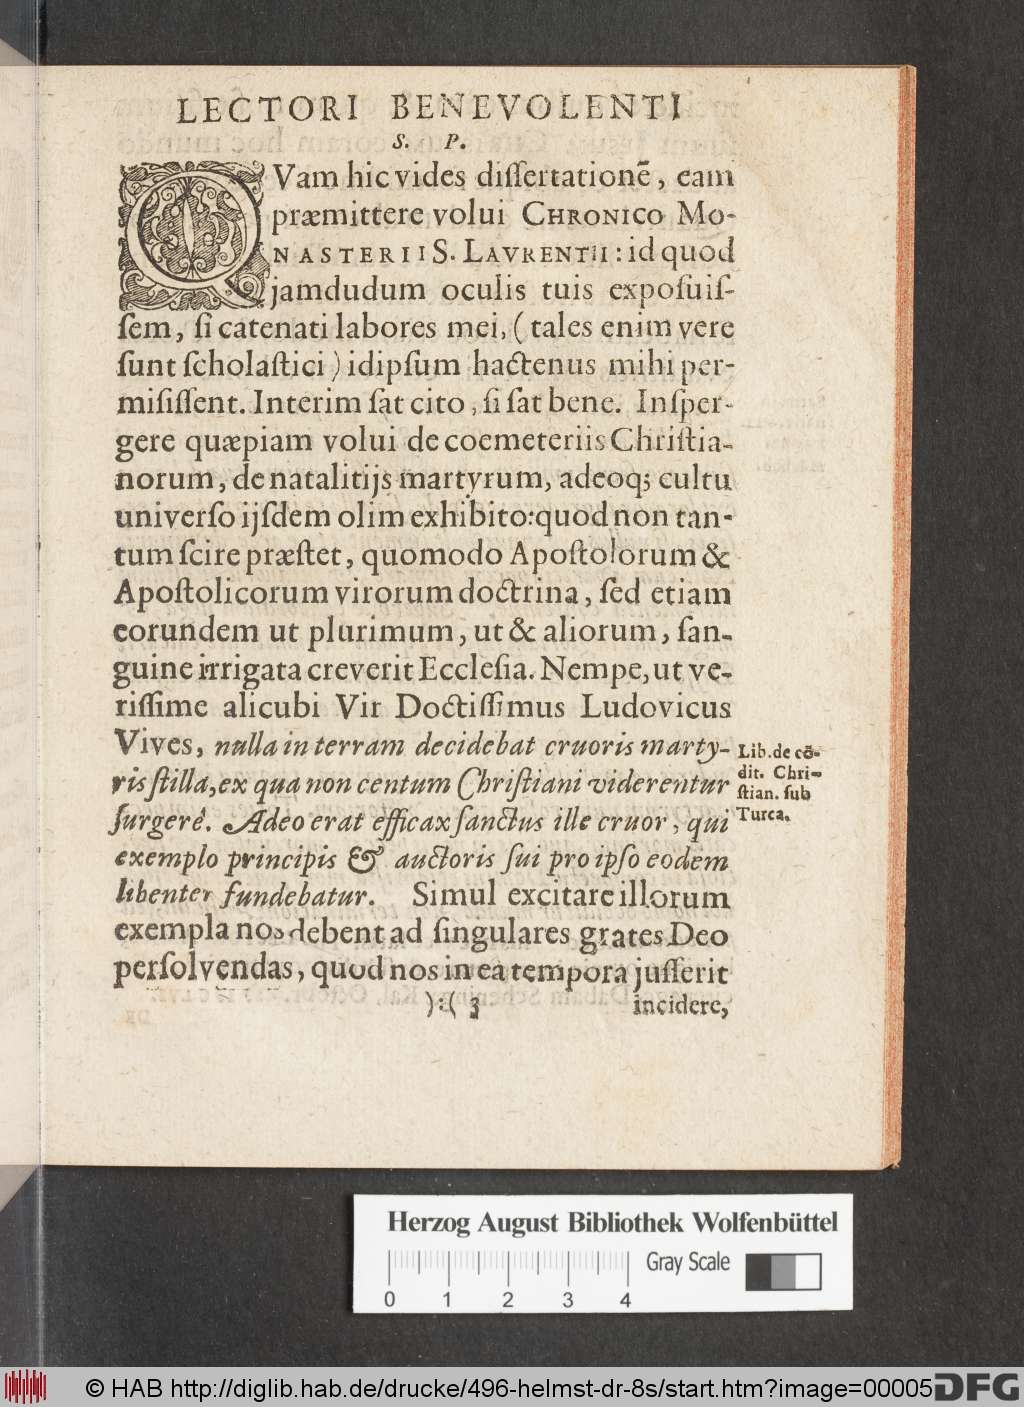 LECTORI BENEVOLENTI
S. P.
QVam hic vides dissertationē, eam
præmittere volui CHRONICO MO-
NASTERII S. LAVRENTII: id quod
jamdudum oculis tuis exposuiſ-
ſem, ſi catenati labores mei, (tales enim vere
ſunt ſcholaſtici) idipſum hactenus mihi per-
miſiſſent. Interim ſat cito, ſi ſat bene. Inſper-
gere quæpiam volui de coemeteriis Chriſtia-
norum, de natalitijs martyrum, adeoq; cultu
univerſo ijſdem olim exhibito: quod non tan-
tum ſcire præſtet, quomodo Apoſtolorum &
Apoſtolicorum virorum doctrina, ſed etiam
eorundem ut plurimum, ut & aliorum, ſan-
guine irrigata creverit Eccleſia. Nempe, ut ve-
riſſime alicubi Vir Doctiſſimus Ludovicus
Vives, nulla in terram decidebat cruoris marty-
ris ſtilla, ex qua non centum Chriſtiani viderentur
ſurgere. Adeo erat efficax ſanctus ille cruor, qui
exemplo principis & auctoris ſui pro ipſo eodem
libenter fundebatur. Simul excitare illorum
exempla nos debent ad ſingulares grates Deo
perſolvendas, quod nos in ea tempora juſſerit
):( 3 incidere,
Lib. de cō-
dit. Chri-
ſtian. ſub
Turca.
Herzog August Bibliothek Wolfenbüttel
Gray Scale
0 1 2 3 4
© HAB http://diglib.hab.de/drucke/496-helmst-dr-8s/start.htm?image=00005
DFG